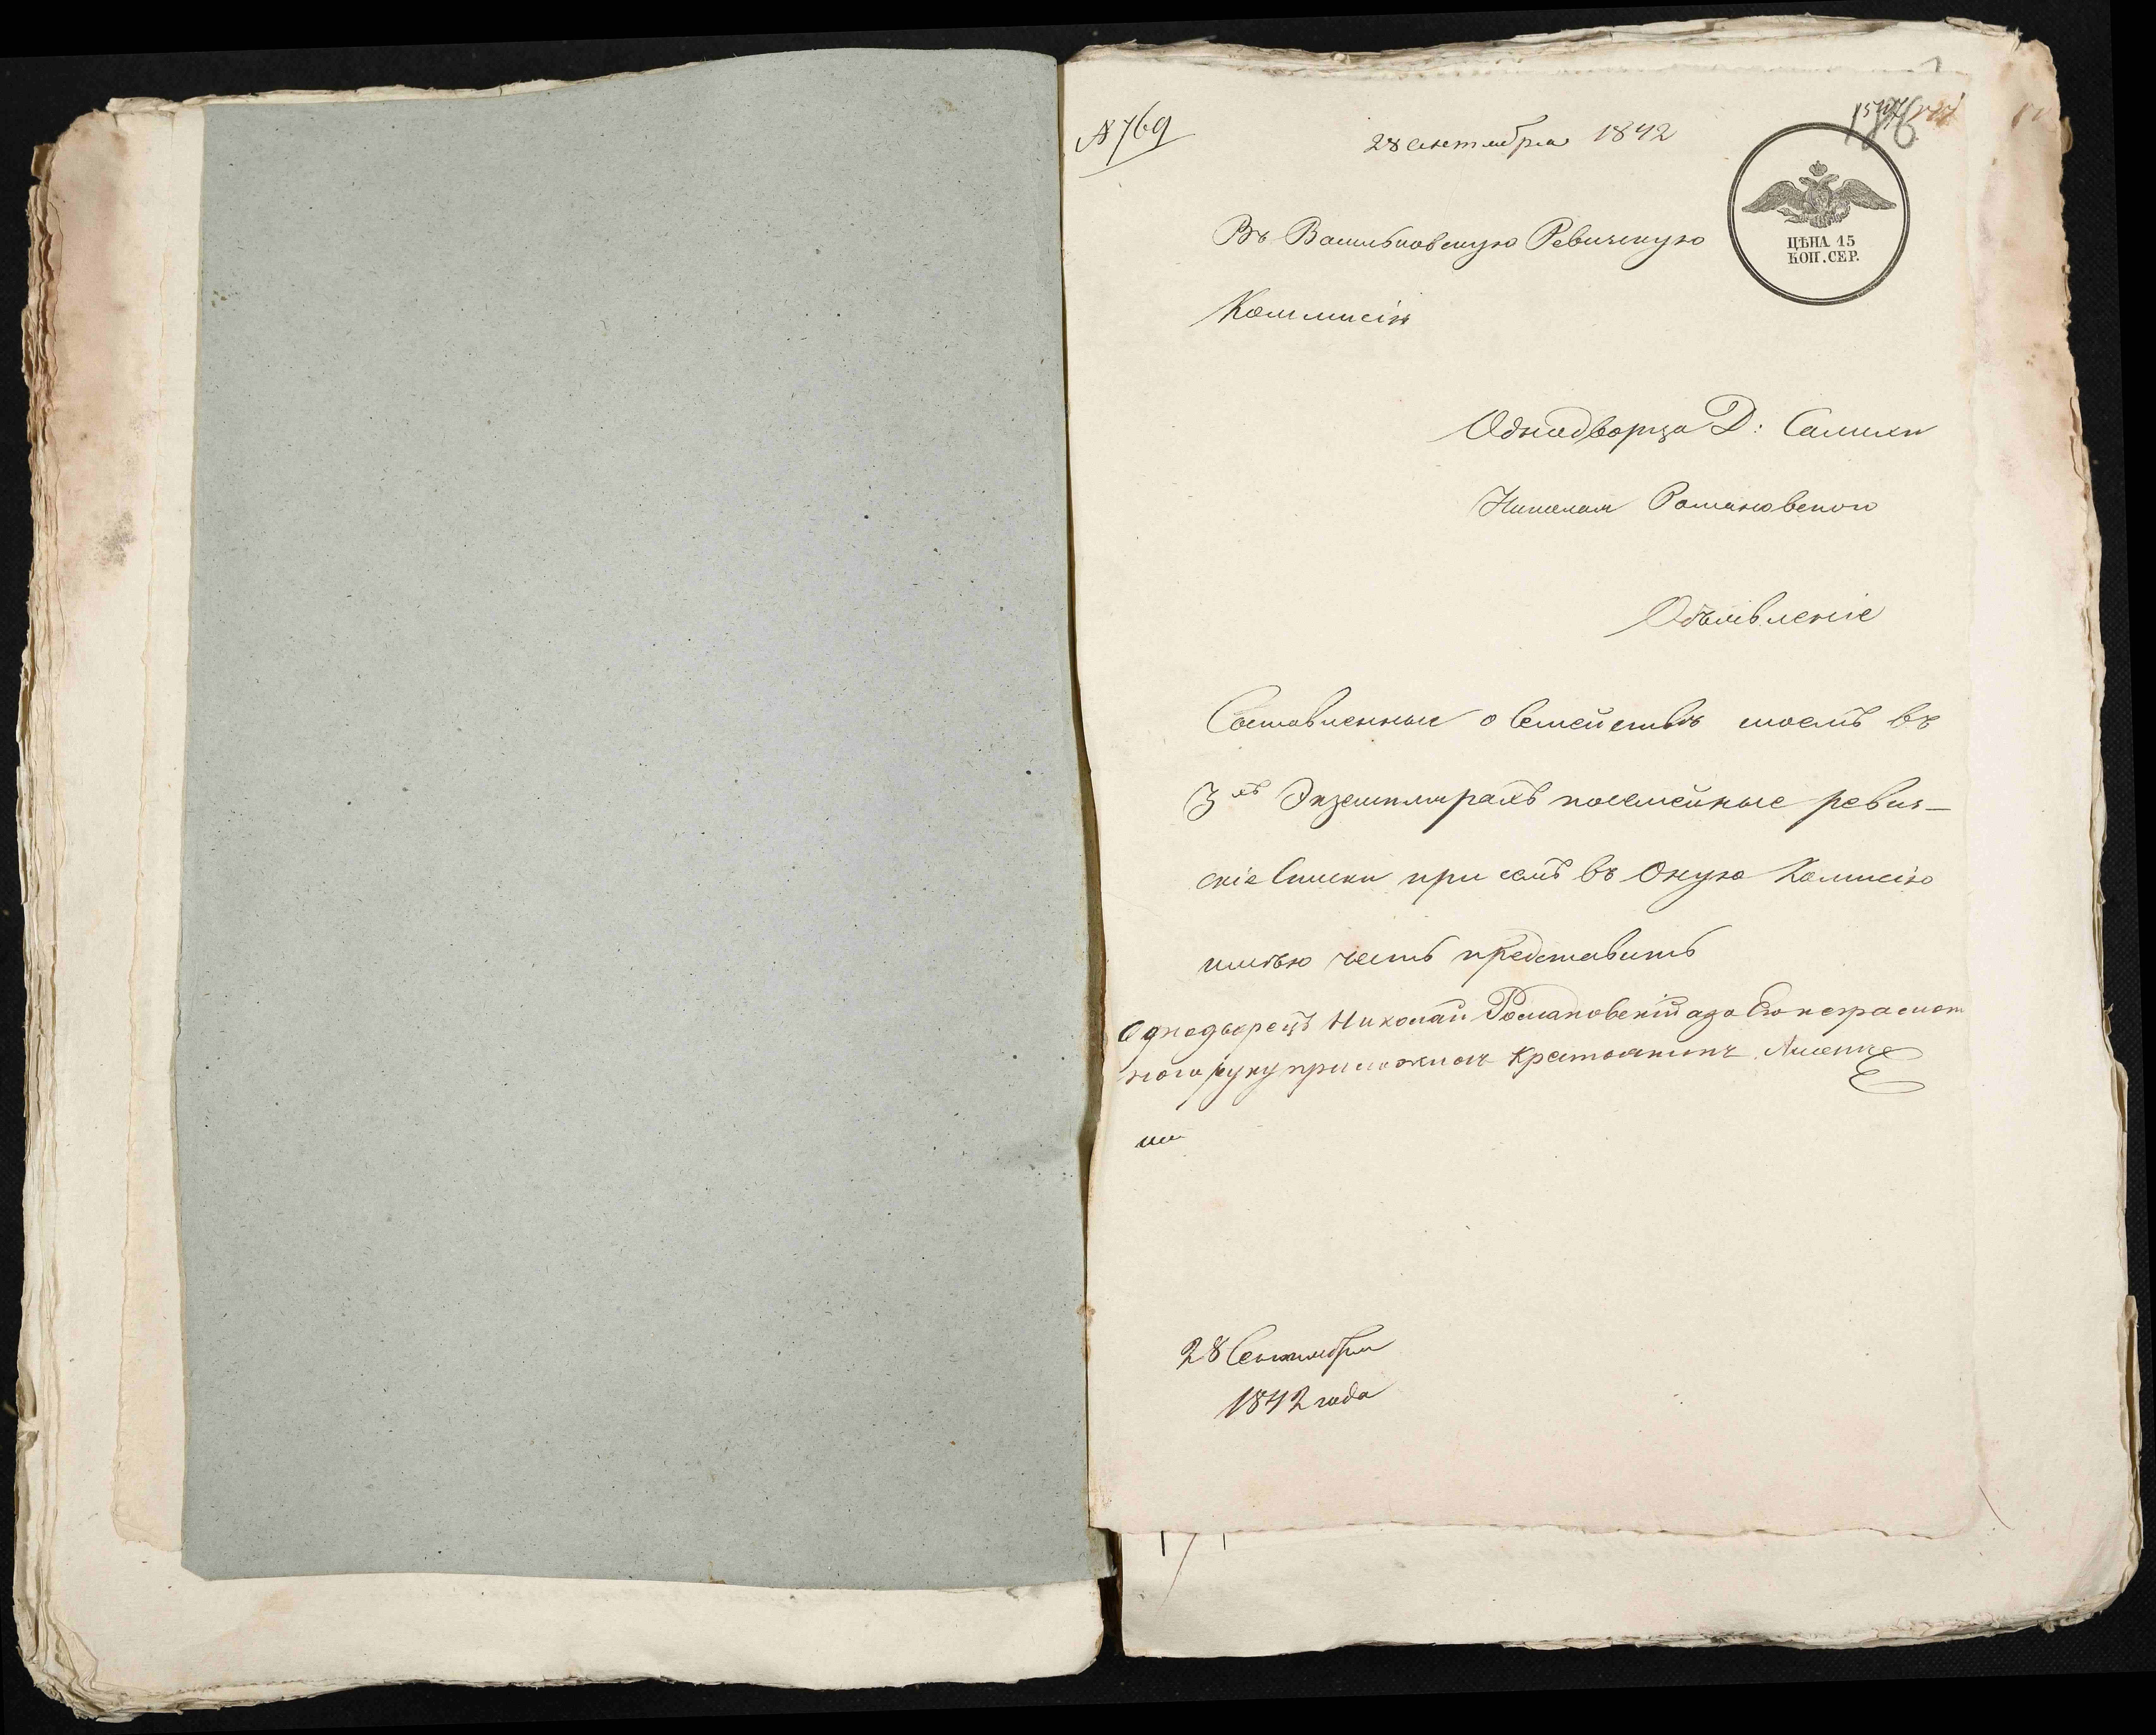 № 769
28 сентября 1842
ЦѢНА 15
КОП. СЕР.
Въ Васильковскую Ревизскую
Коммисію
Однодворца Д:
Николая Романовского
Объявленіе
Составленные о Семействѣ моемъ въ
3хъ Экземплярахъ посемейные ревиз-
скіе Списки при семъ въ Оную Комисію
имѣю честь представить
Однодворецъ Николай Романовскій а за Его неграмот
ного руку приложилъ
28 Сентября
1842 года